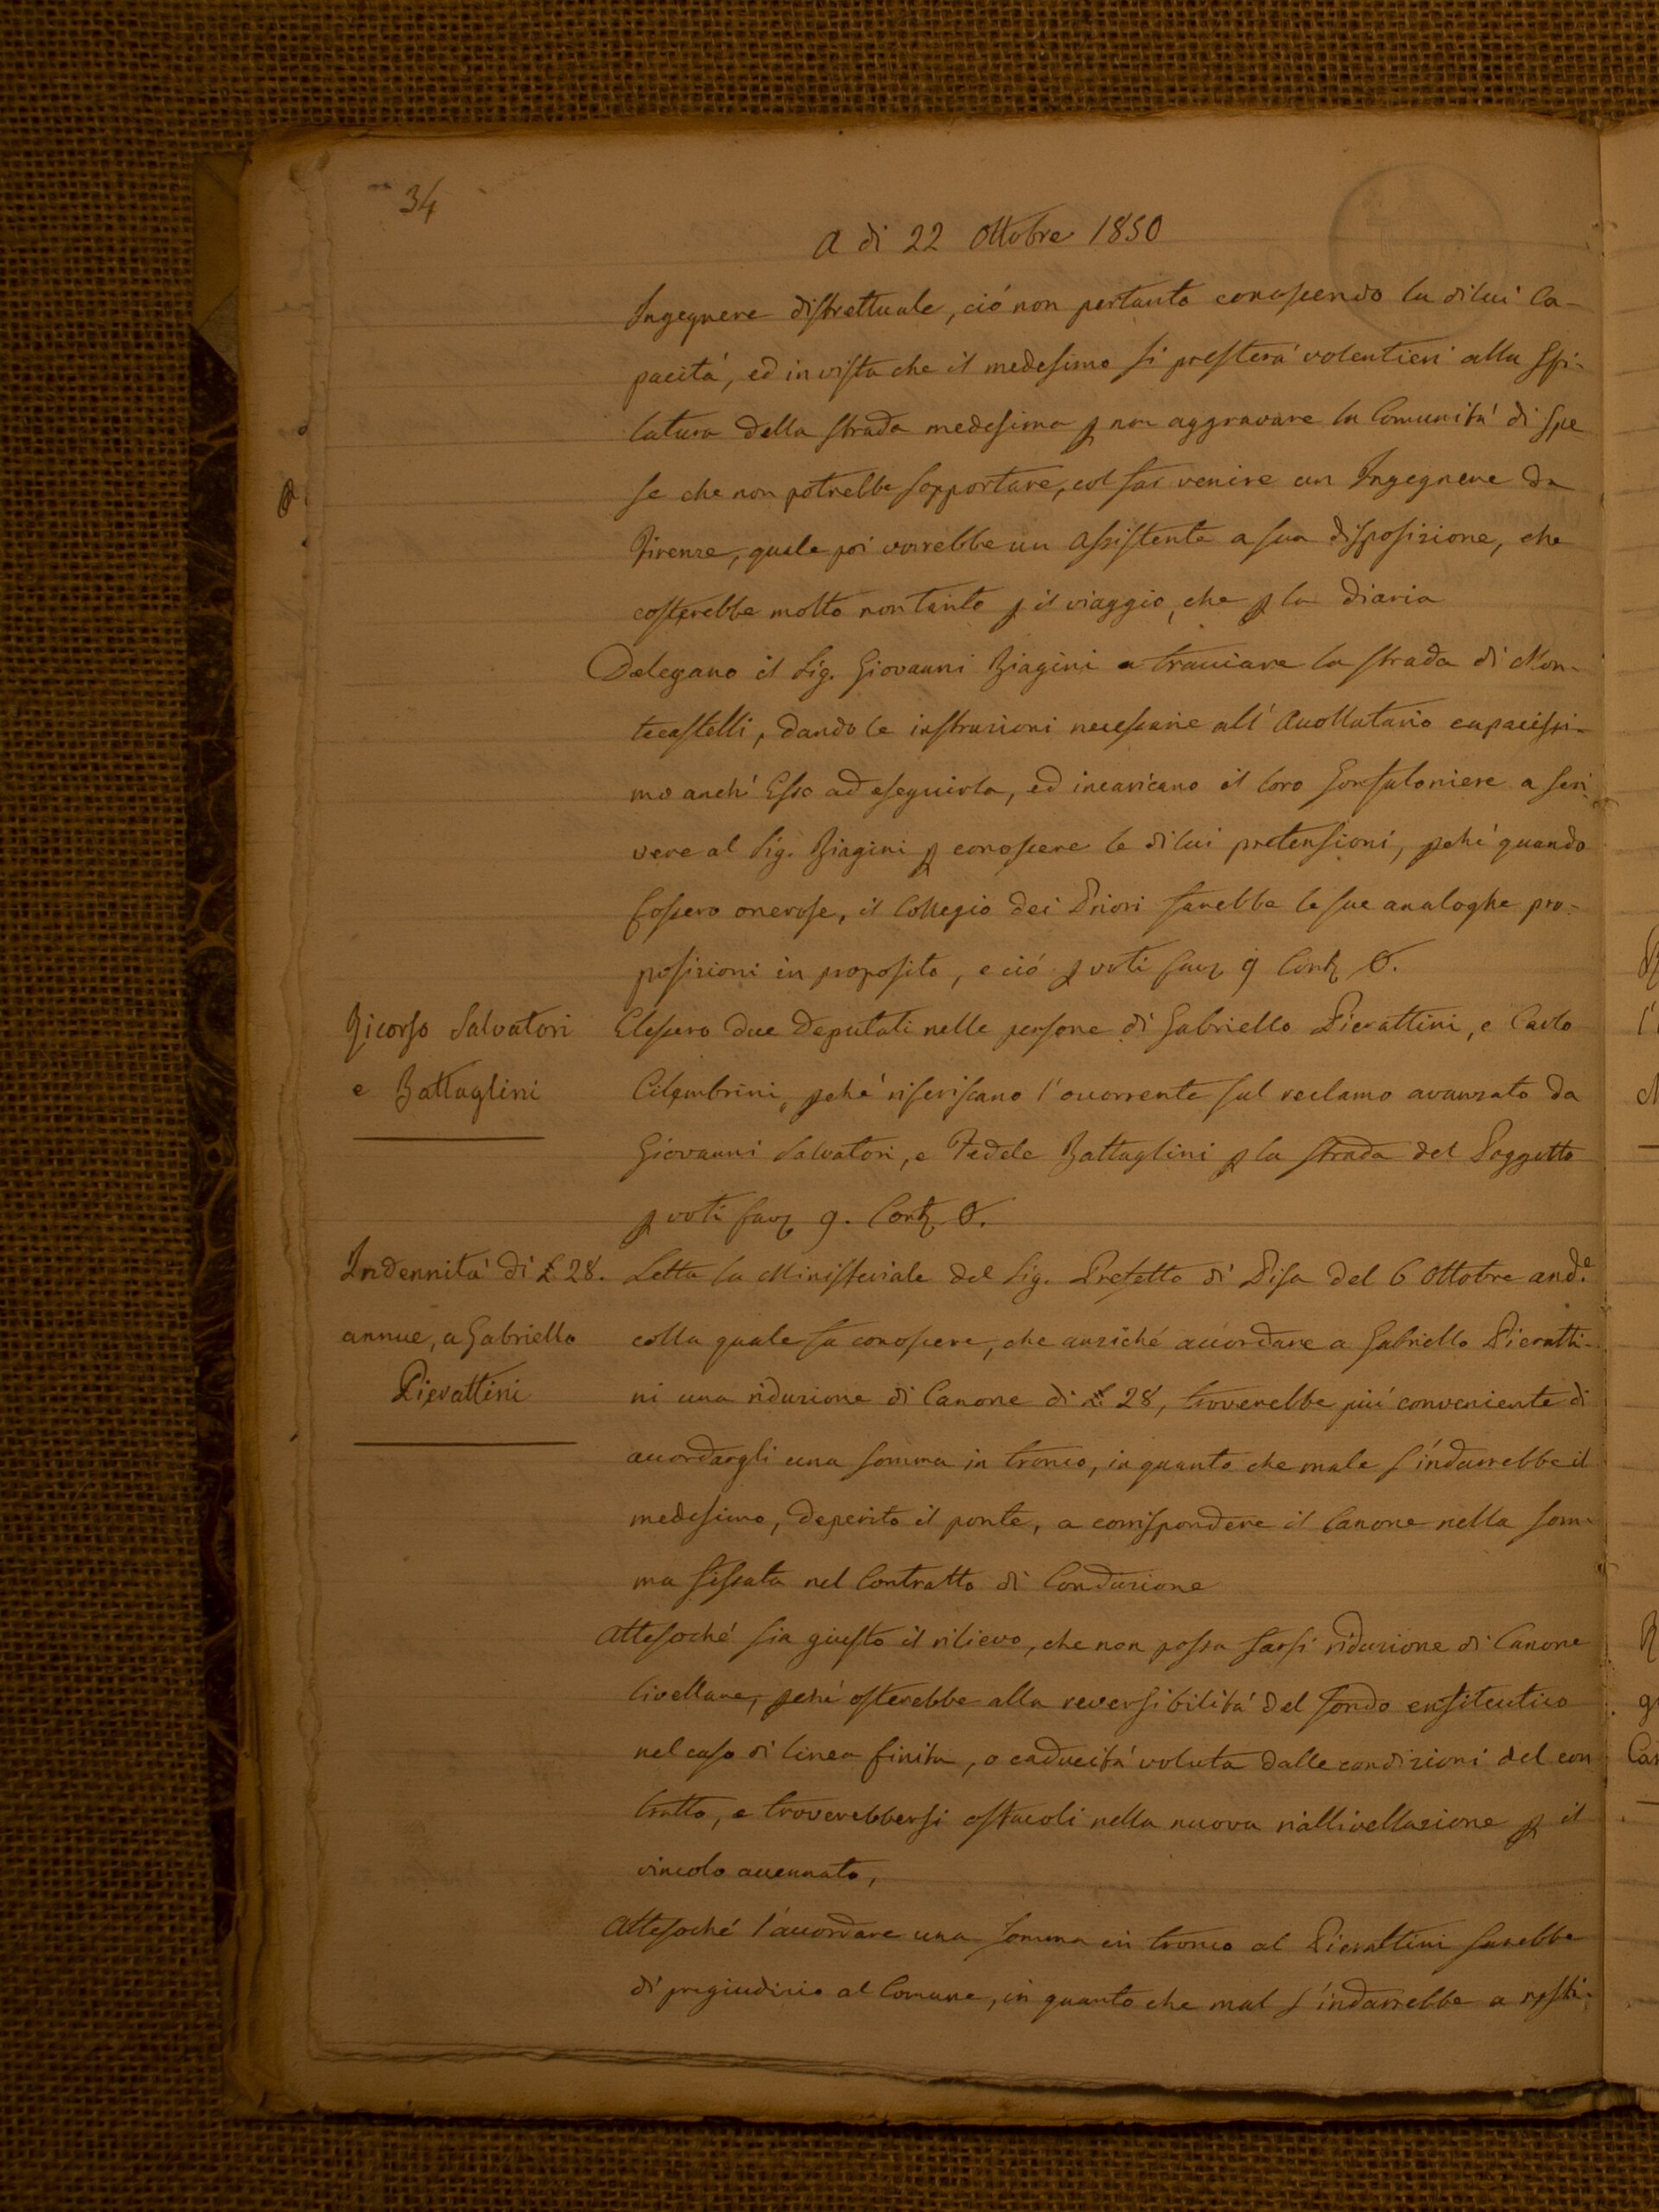 34
A dì 22 Ottobre 1850
Ingegnere distrettuale, ciò non pertanto conoscendo la dilui Ca-
pacità, ed in vista che il medesimo si presterà volentieri alla Spi-
latura della strada medesima p non aggravare la Comunità di Spe
se che non potrebbe sopportare, col far venire un Ingegnere da
Firenze, quale poi vorrebbe un Assistente a sua disposizione, che
costerebbe molto non tanto p il viaggio, che p la diaria
Delegano il Sig. Giovanni Biagini a tracciare la strada di Mon-
tecastelli, dando le instruzioni necessarie all' Accollatario capacissi-
mo anch' Esso ad eseguirla, ed incaricano il loro Gonfaloniere a scri
vere al Sig. Biagini p conoscere le dilui pretensioni, pchè quando
fossero onerose, il Collegio dei Priori farebbe le sue analoghe pro-
posizioni in proposito, e ciò p voti fav 9 Contr 0.
Ricorso Salvatori
e Battaglini
Elessero due Deputati nelle persone di Gabriello Pierattini, e Carlo
Cilembrini, pchè riferiscano l'occorrente sul reclamo avanzato da
Giovanni Salvatori, e Fedele Battaglini p la strada del Poggetto
p voti fav 9. Contr. 0.
Indennità di £ 28.
annue, a Gabriello
Pierattini
Letta la Ministeriale del Sig. Prefetto di Pisa del 6 Ottobre and.e
colla quale fa conoscere, che anziché accordare a Gabriello Pieratti-
ni una riduzione di Canone di £ 28, troverebbe più conveniente di
accordargli una somma in tronco, in quanto che male s'indurrebbe il
medesimo, deperito il ponte, a corrispondere il Canone nella som-
ma fissata nel Contratto di Conduzione
Attesoché sia giusto il rilievo, che non possa farsi riduzione di Canone
livellare, pchè osterebbe alla reversibilità del fondo enfiteutico
nel caso di linea finita, o caducità voluta dalle condizioni del con
tratto, e troverebbersi ostacoli nella nuova riallivellazione p il
vincolo accennato,
Attesoché l'accordare una somma in tronco al Pierattini sarebbe
di pregiudizio al Comune, in quanto che mal s'indurrebbe a resti-